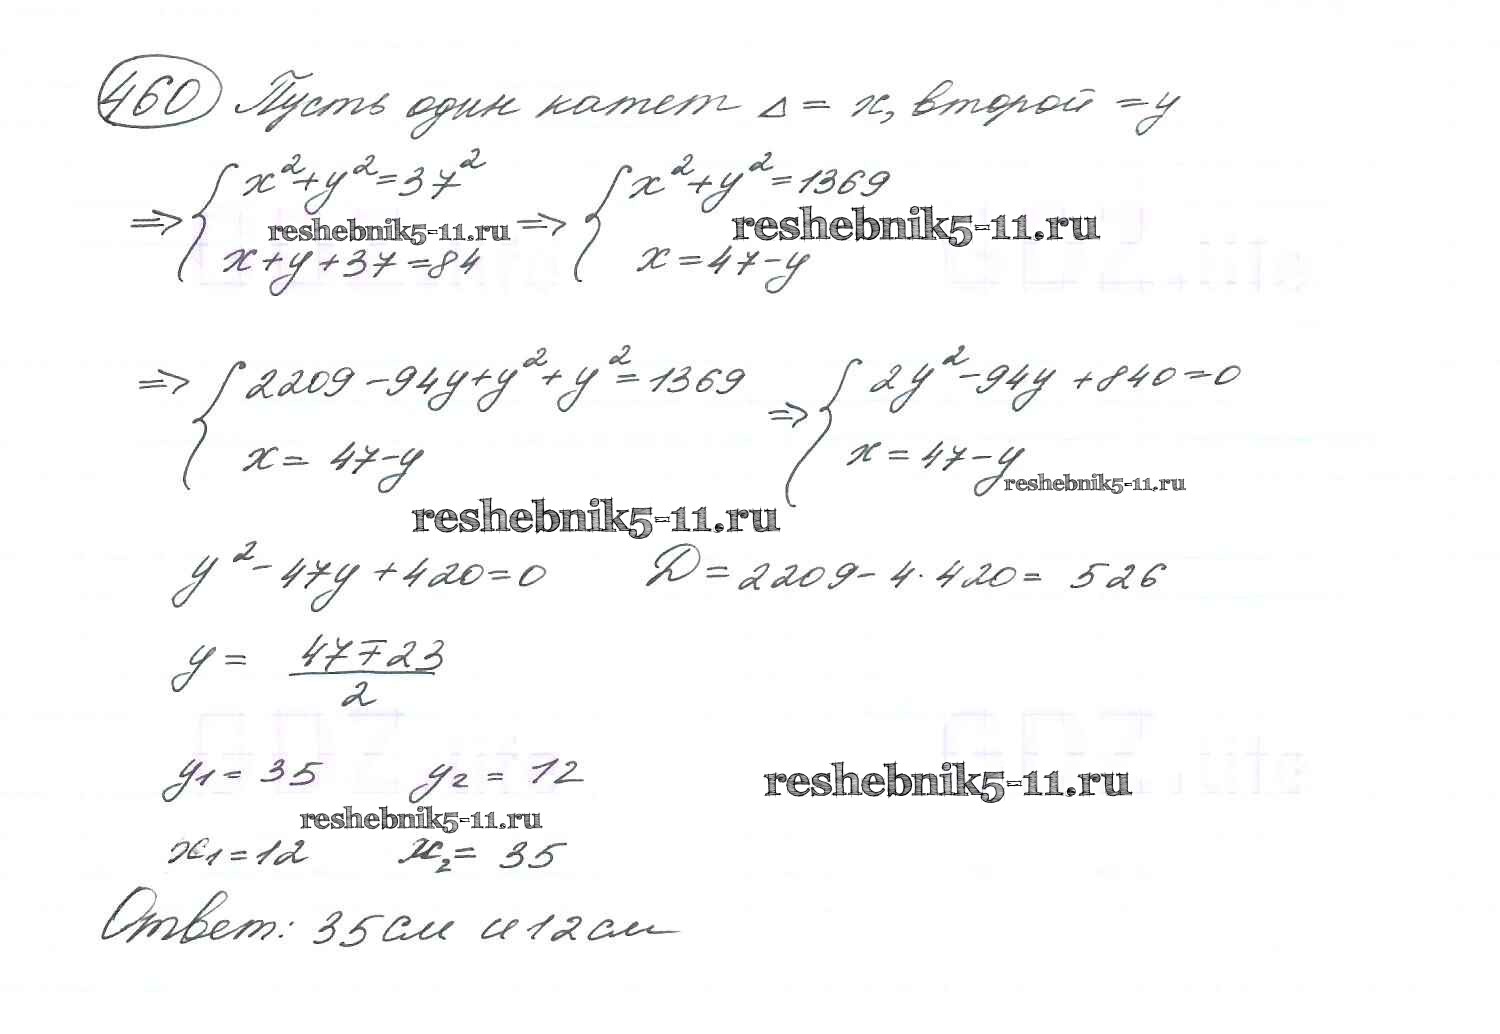 460 Пусть один катет Δ = x, второй = y
⇒ { x² + y² = 37² ⇒ { x² + y² = 1369
reshebnik5-11.ru reshebnik5-11.ru
x + y + 37 = 84 x = 47 - y
⇒ { 2209 - 94y + y² + y² = 1369 ⇒ { 2y² - 94y + 840 = 0
x = 47 - y x = 47 - y
reshebnik5-11.ru
reshebnik5-11.ru
y² - 47y + 420 = 0 D = 2209 - 4 · 420 = 526
y = (47 ∓ 23) / 2
y1 = 35 y2 = 12
reshebnik5-11.ru
reshebnik5-11.ru
x1 = 12 x2 = 35
Ответ: 35 см и 12 см